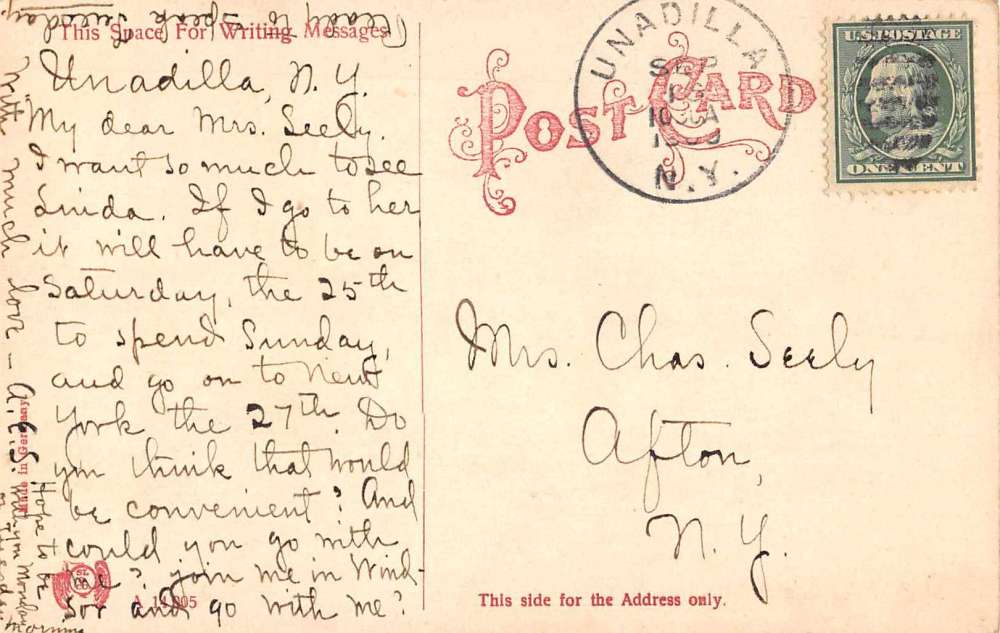 This Space For Writing Messages
Unadilla, N.Y.
My dear Mrs. Seely.
I want so much to see
Linda. If I go to her
it will have to be on
Saturday, the 25th
to spend Sunday,
and go on to New
York the 27th. Do
you think that would
be convenient? And
could you go with
me? join me in Wind-
sor and go with me?
With much love - A.E.S.
Hope to be
with you Monday
morning
ready to speak Tuesday.
Made in Germany
SL
CO
A 14005
POST CARD
UNADILLA
SEP
10 A
N.Y.
U.S. POSTAGE
ONE CENT
Mrs. Chas. Seely
Afton,
N.Y.
This side for the Address only.